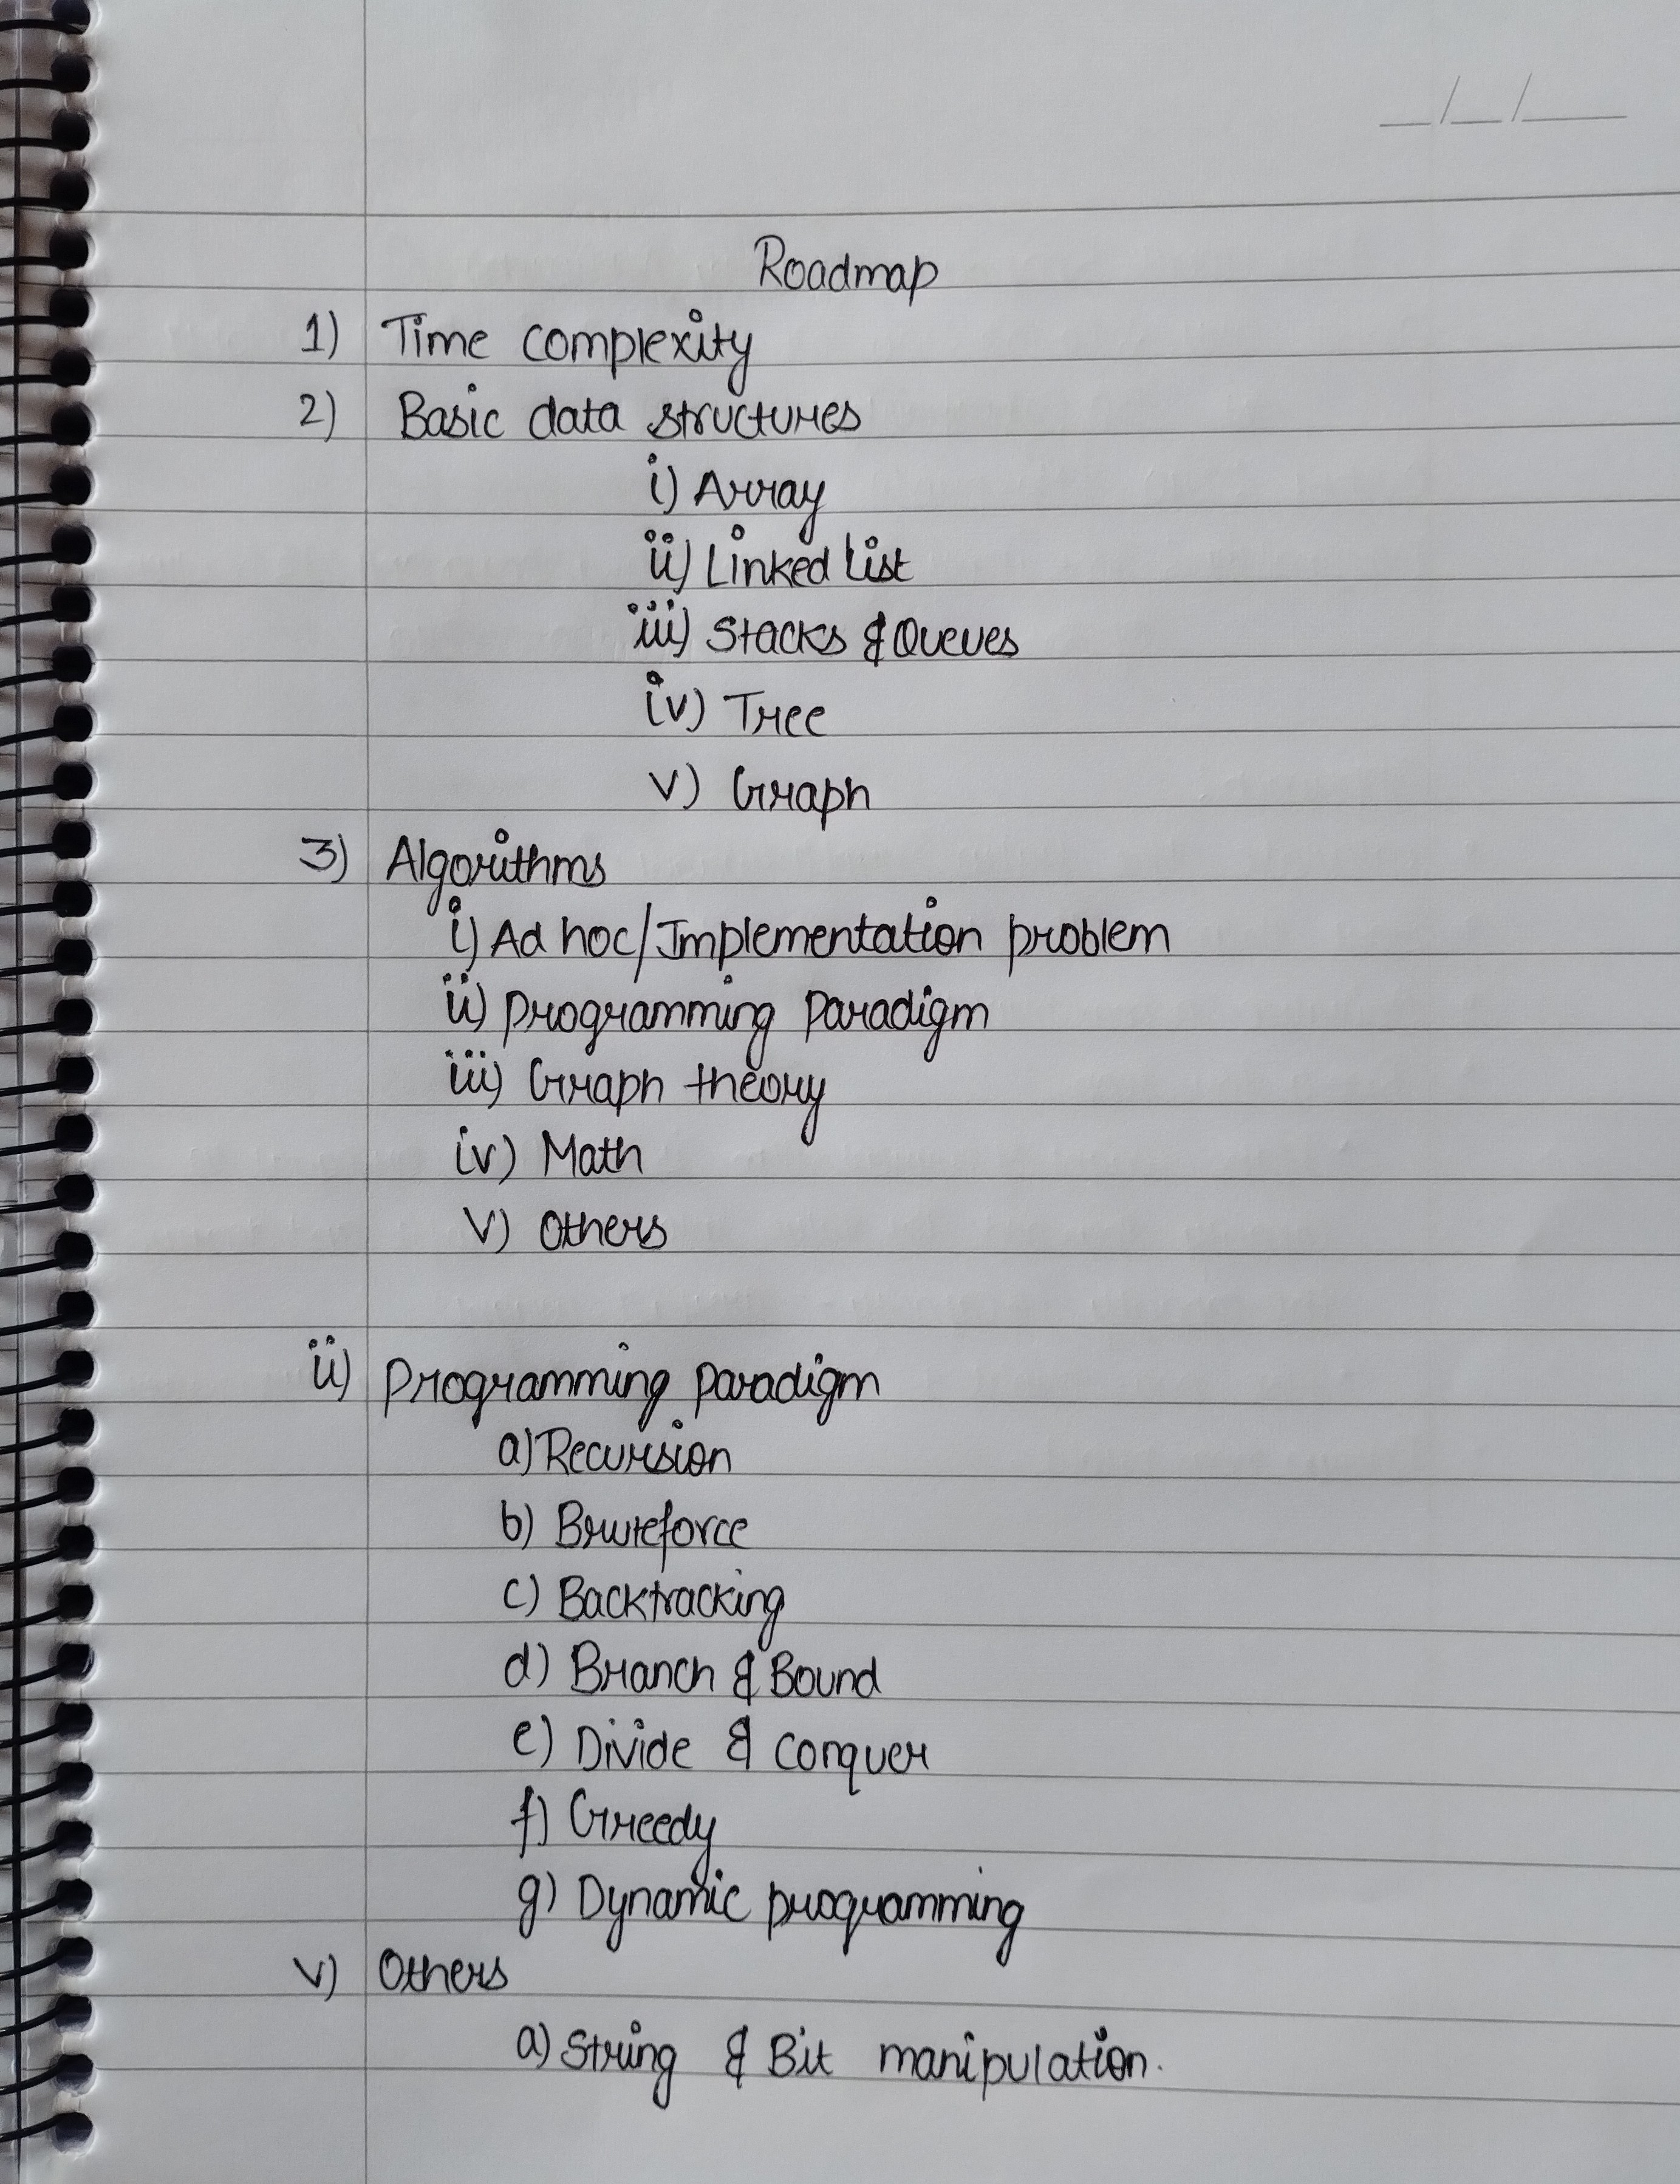 __/__/____
Roadmap
1) Time complexity
2) Basic data structures
i) Array
ii) Linked list
iii) Stacks & Queues
iv) Tree
v) Graph
3) Algorithms
i) Ad hoc/Implementation problem
ii) Programming Paradigm
iii) Graph theory
iv) Math
v) Others
ii) Programming paradigm
a) Recursion
b) Bruteforce
c) Backtracking
d) Branch & Bound
e) Divide & conquer
f) Greedy
g) Dynamic programming
v) Others
a) String & Bit manipulation.